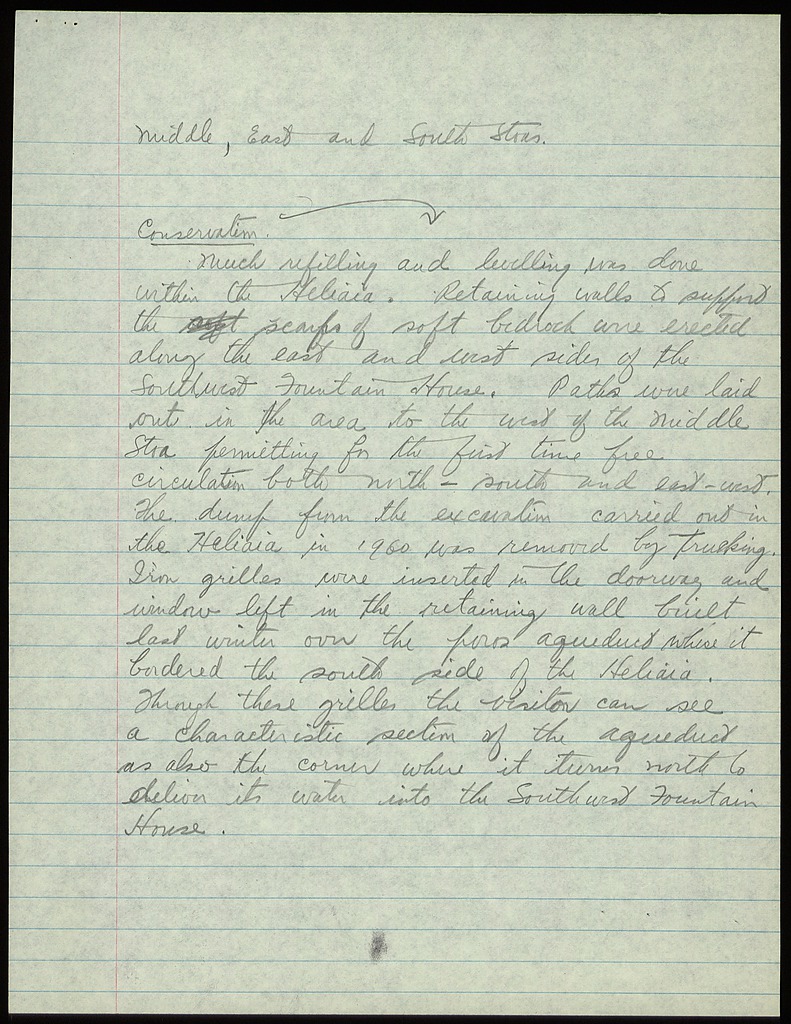 Middle, East and South Stoas.
Conservation.
Much refilling and levelling was done
within the Heliaia. Retaining walls to support
the scarps of soft bedrock were erected
along the east and west sides of the
Southwest Fountain House. Paths were laid
out in the area to the west of the Middle
Stoa permitting for the first time free
circulation both north - south and east-west.
The dump from the excavation carried out in
the Heliaia in 1960 was removed by trucking.
Iron grilles were inserted in the doorway and
window left in the retaining wall built
last winter over the poros aqueduct where it
bordered the south side of the Heliaia.
Through these grilles the visitor can see
a characteristic section of the aqueduct
as also the corner where it turns north to
deliver its water into the Southwest Fountain
House.